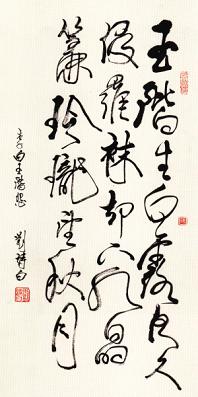 玉階生白露夜久
侵羅袜却下水晶
簾玲瓏望秋月
李白玉階怨
劉